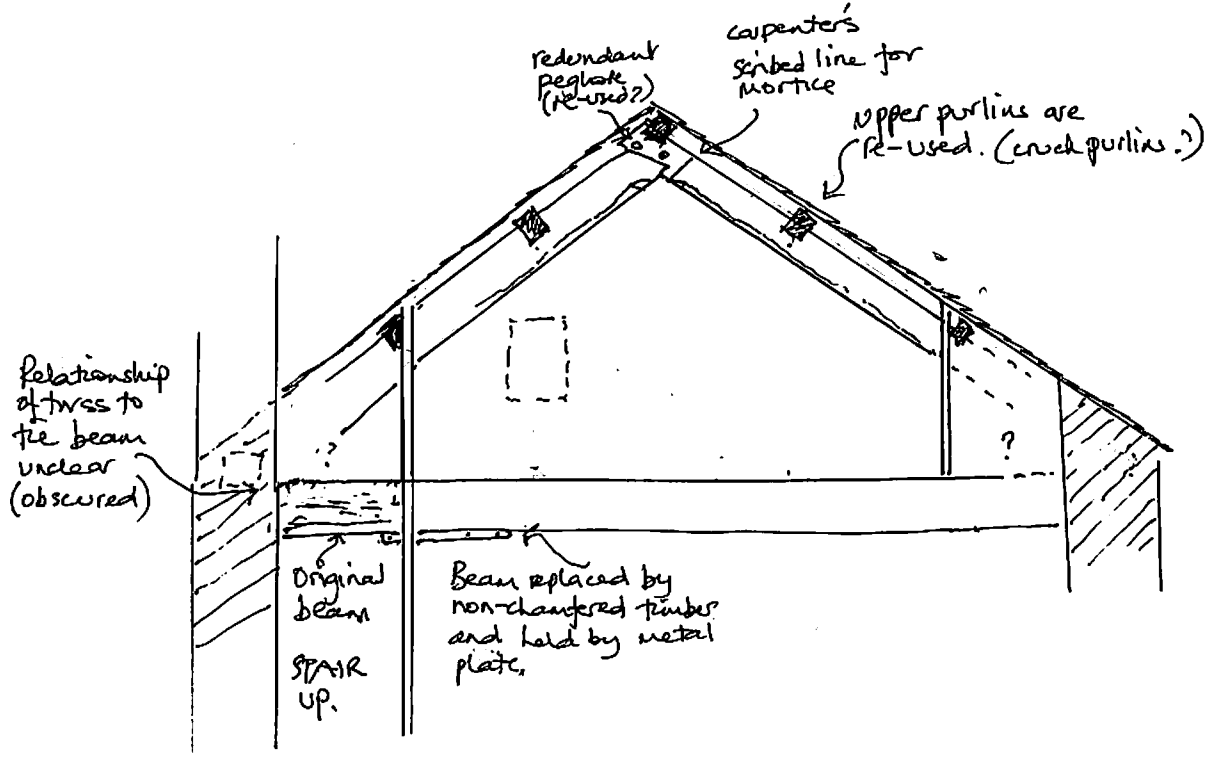 redundant
peghole
(re-used?)
carpenter's
scribed line for
mortice
Upper purlins are
re-used. (cruck purlins?)
Relationship
of truss to
tie beam
unclear
(obscured)
?
?
Original
beam
STAIR
UP.
Beam replaced by
non-chamfered timber
and held by metal
plate.